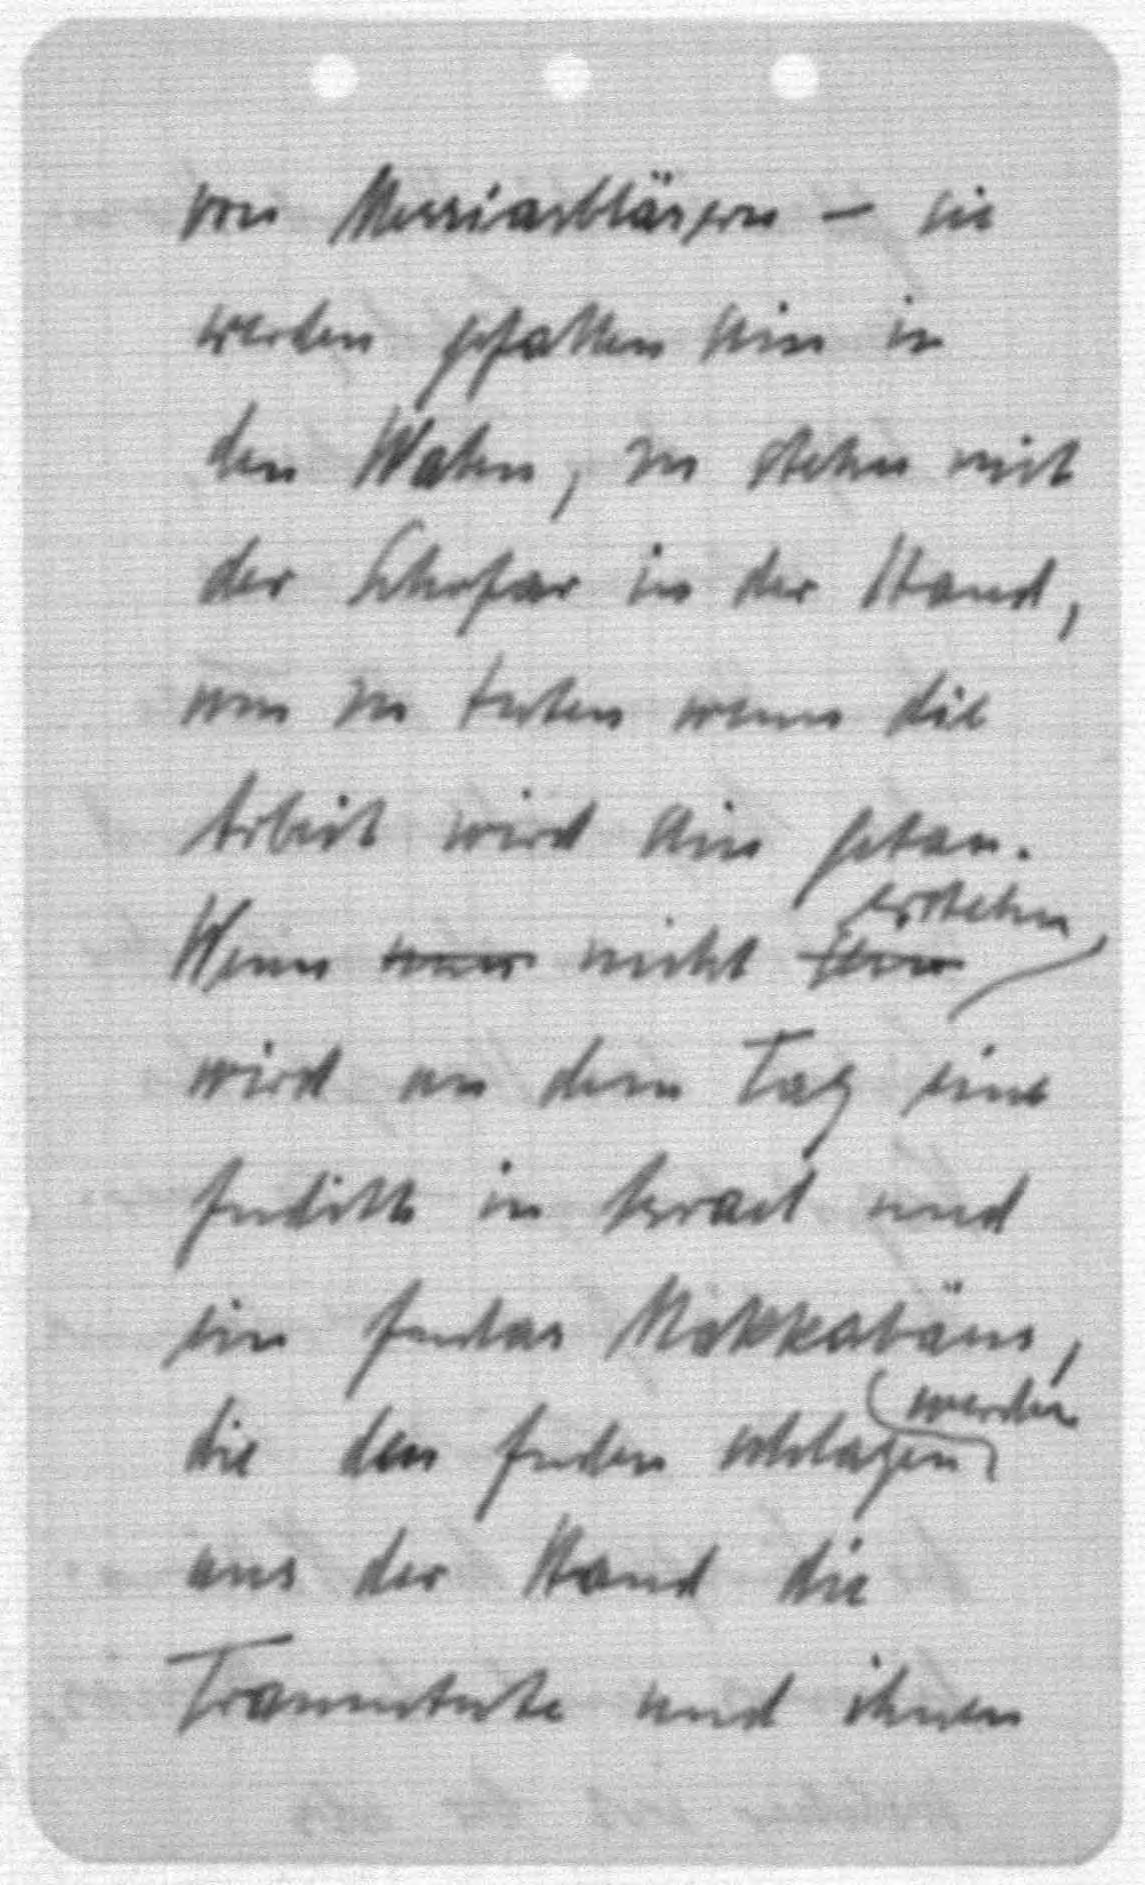 von Messiasbläsern – sie
werden gefallen sein in
den Wahn, zu stehn mit
der Schofar in der Hand,
um zu tuten wenn die
Arbeit wird sein getan.
erstehn
Wenn nicht
wird an dem Tag eine
Judith in Israel und
ein Judas Makkabäus,
werden
die den Juden schlagen
aus der Hand die
Traumtute und ihnen